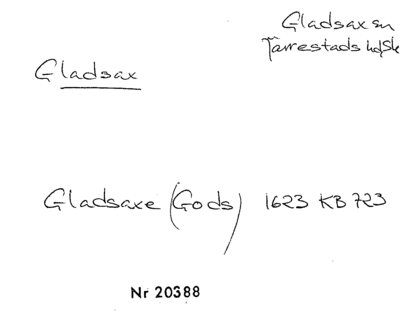 Gladsax sn
Järrestads hd, Sk
Gladsax
Gladsaxe (Gods) 1623 KB 723
Nr 20388